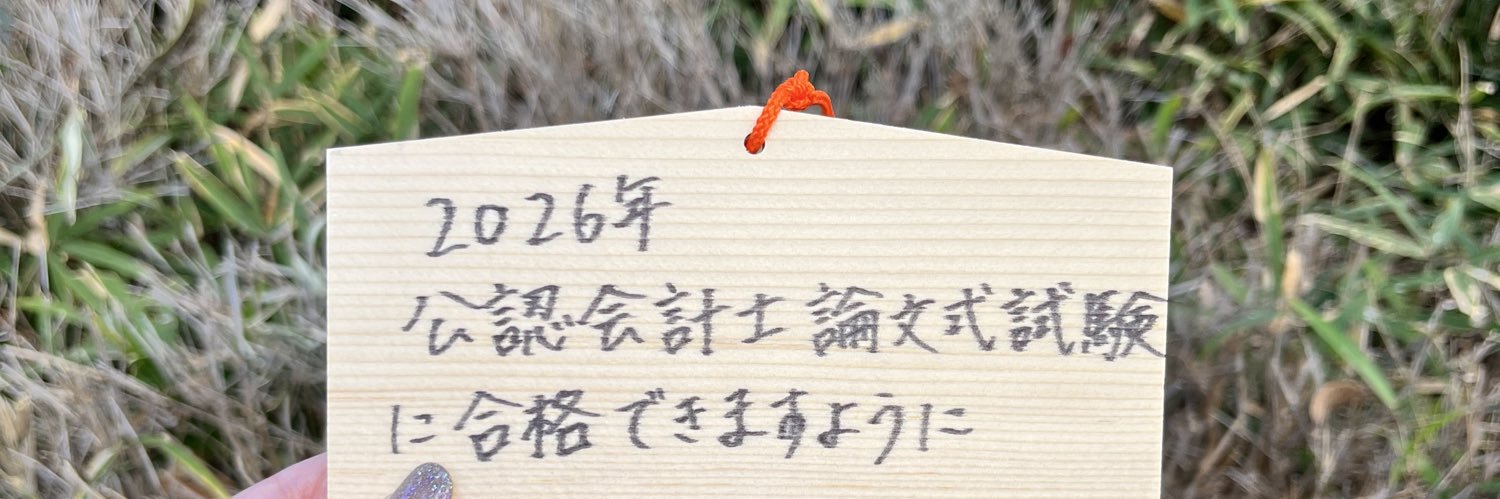 2026年
公認会計士論文式試験
に合格できますように